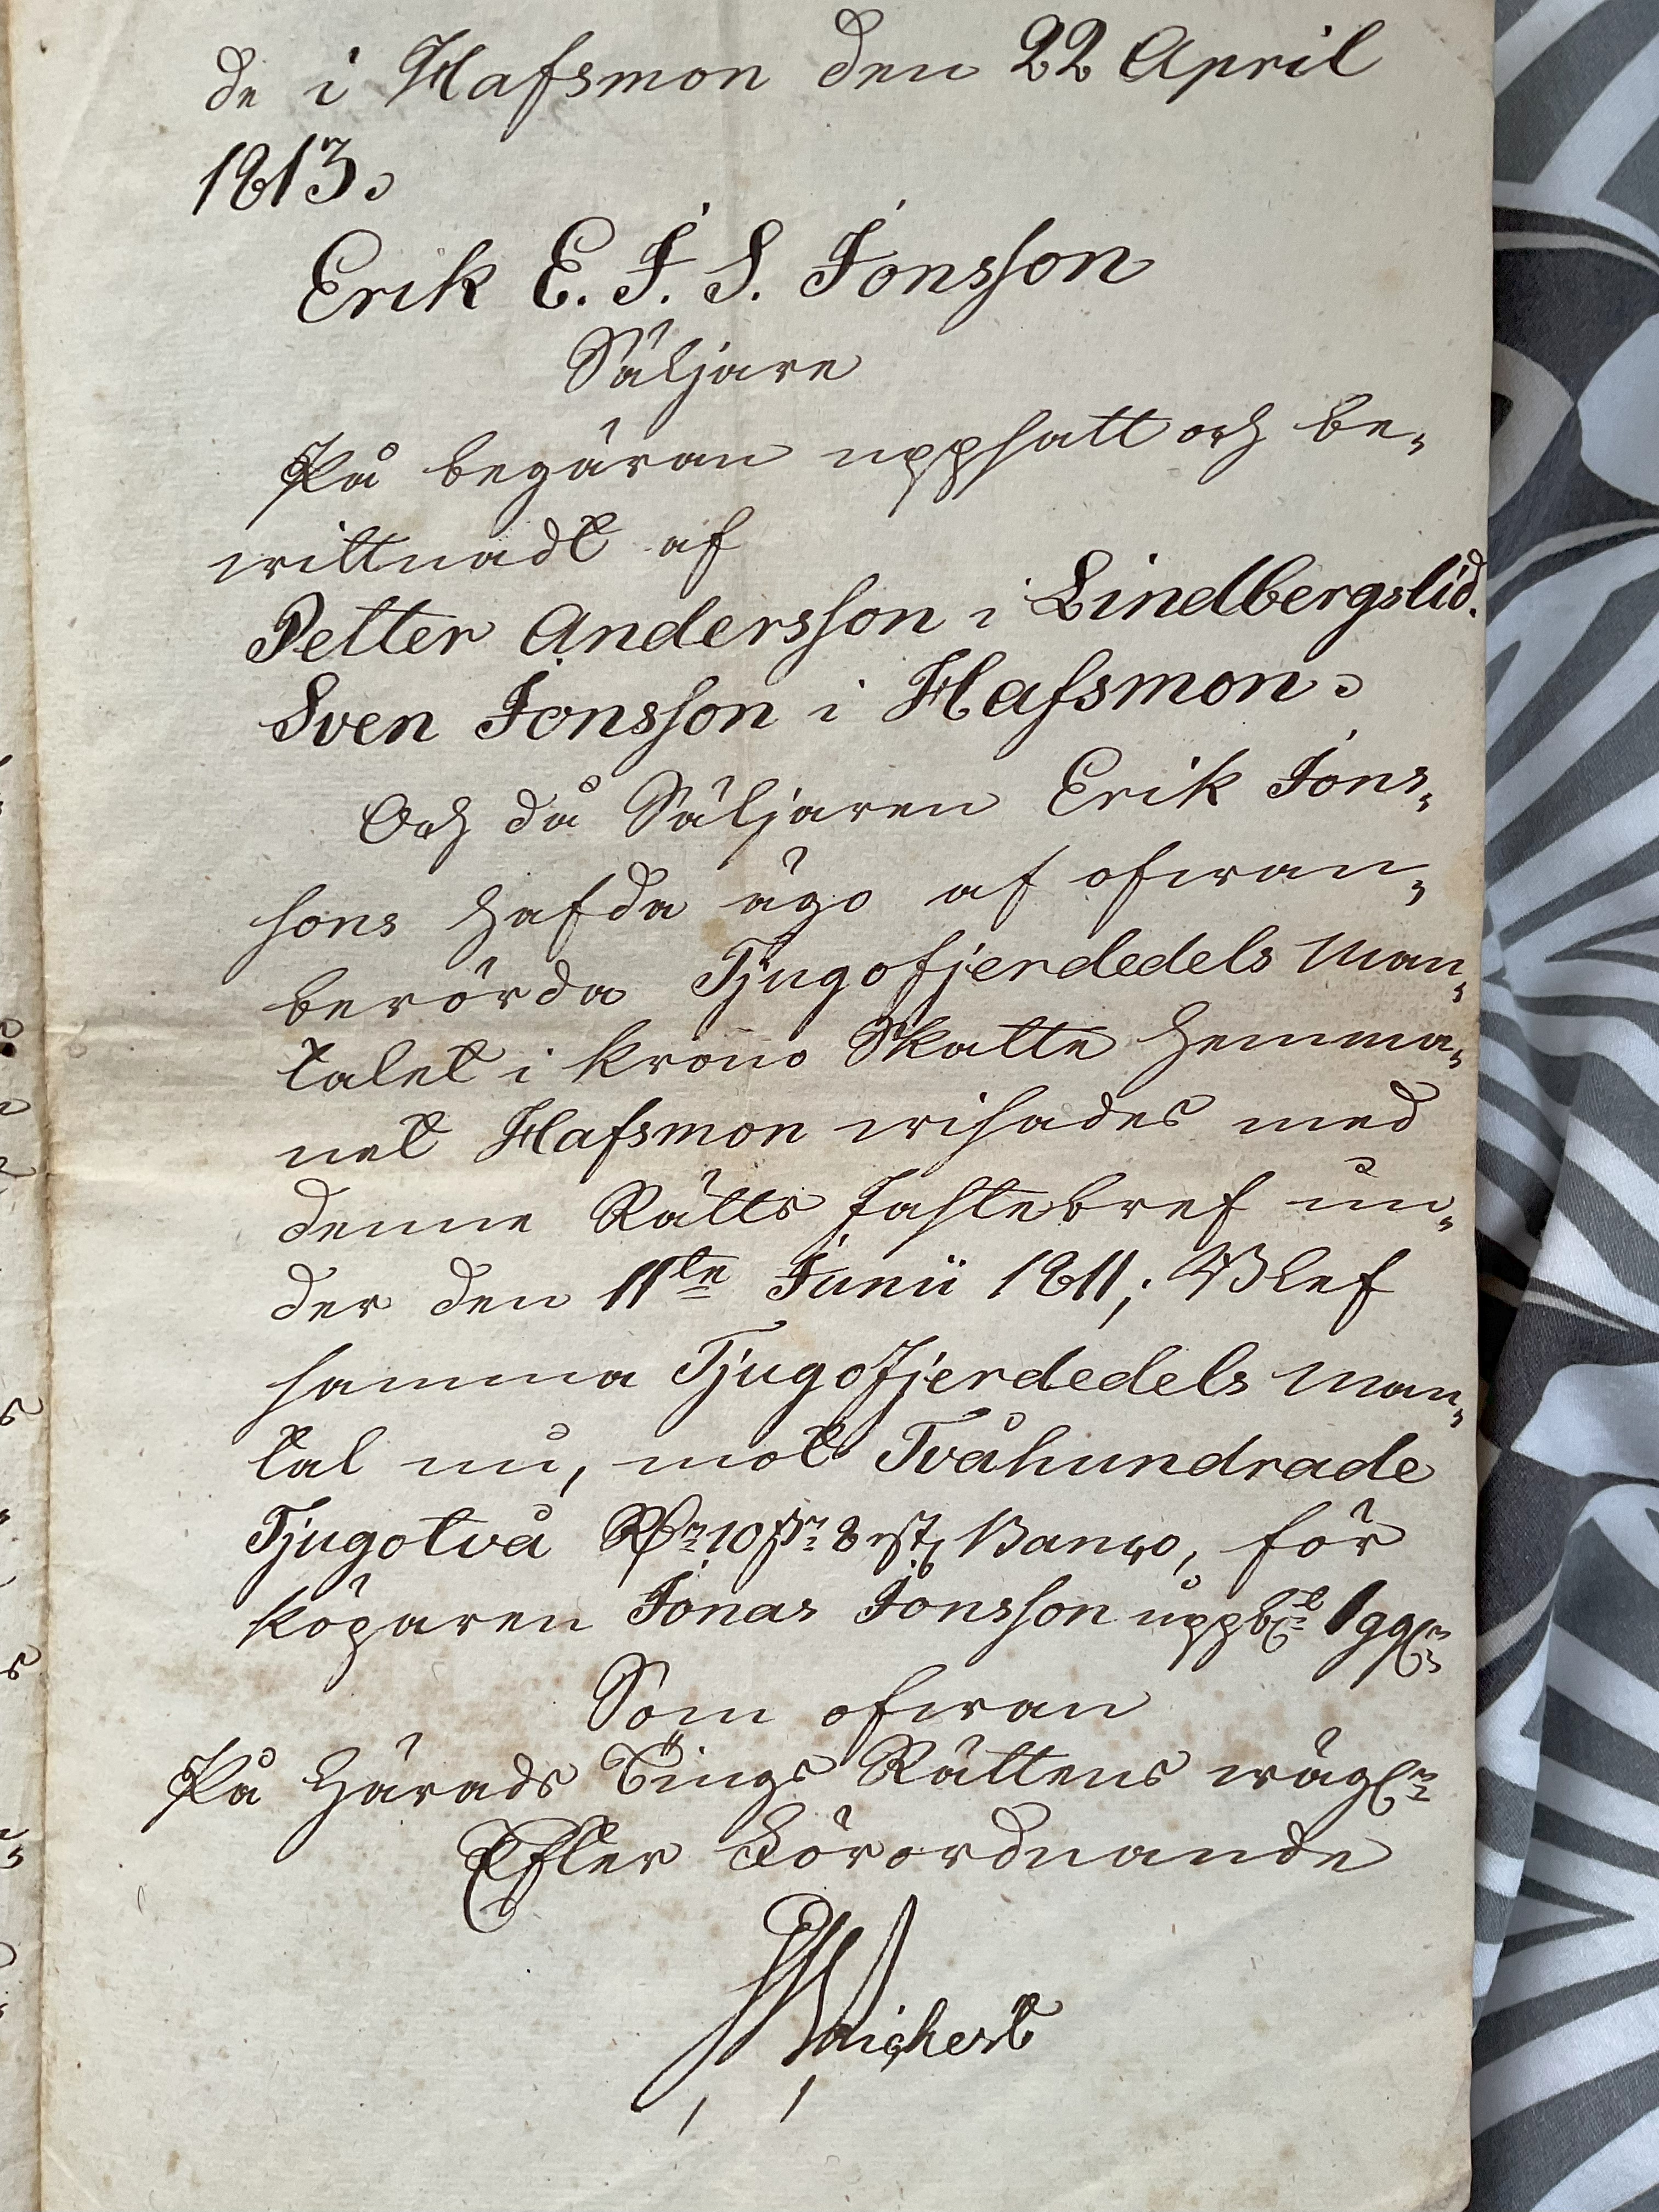 de i Hafsmon den 22 April
1813.
Erik E. J. S. Jonsson
Säljare
På begäran uppsatt och be-
wittnadt af
Petter Andersson i Lindbergslid.
Sven Jonsson i Hafsmon.
Och då Säljaren Erik Jons-
sons hafda ägo af ofwan-
berörda Tjugofjerdedels Man-
talet i Krono Skatte hemma-
net Hafsmon wisades med
denne Rätts fastebref un-
der den 11te Junii 1811; Blef
samma Tjugofjerdedels Man-
tal nu, mot Tvåhundrade
Tjugotvå Rdr 10 s 8 rst Banco, för
köparen Jonas Jonsson uppbt 1 gg
Som ofwan
På Härads Tings Rättens wägr
Efter Förordnande